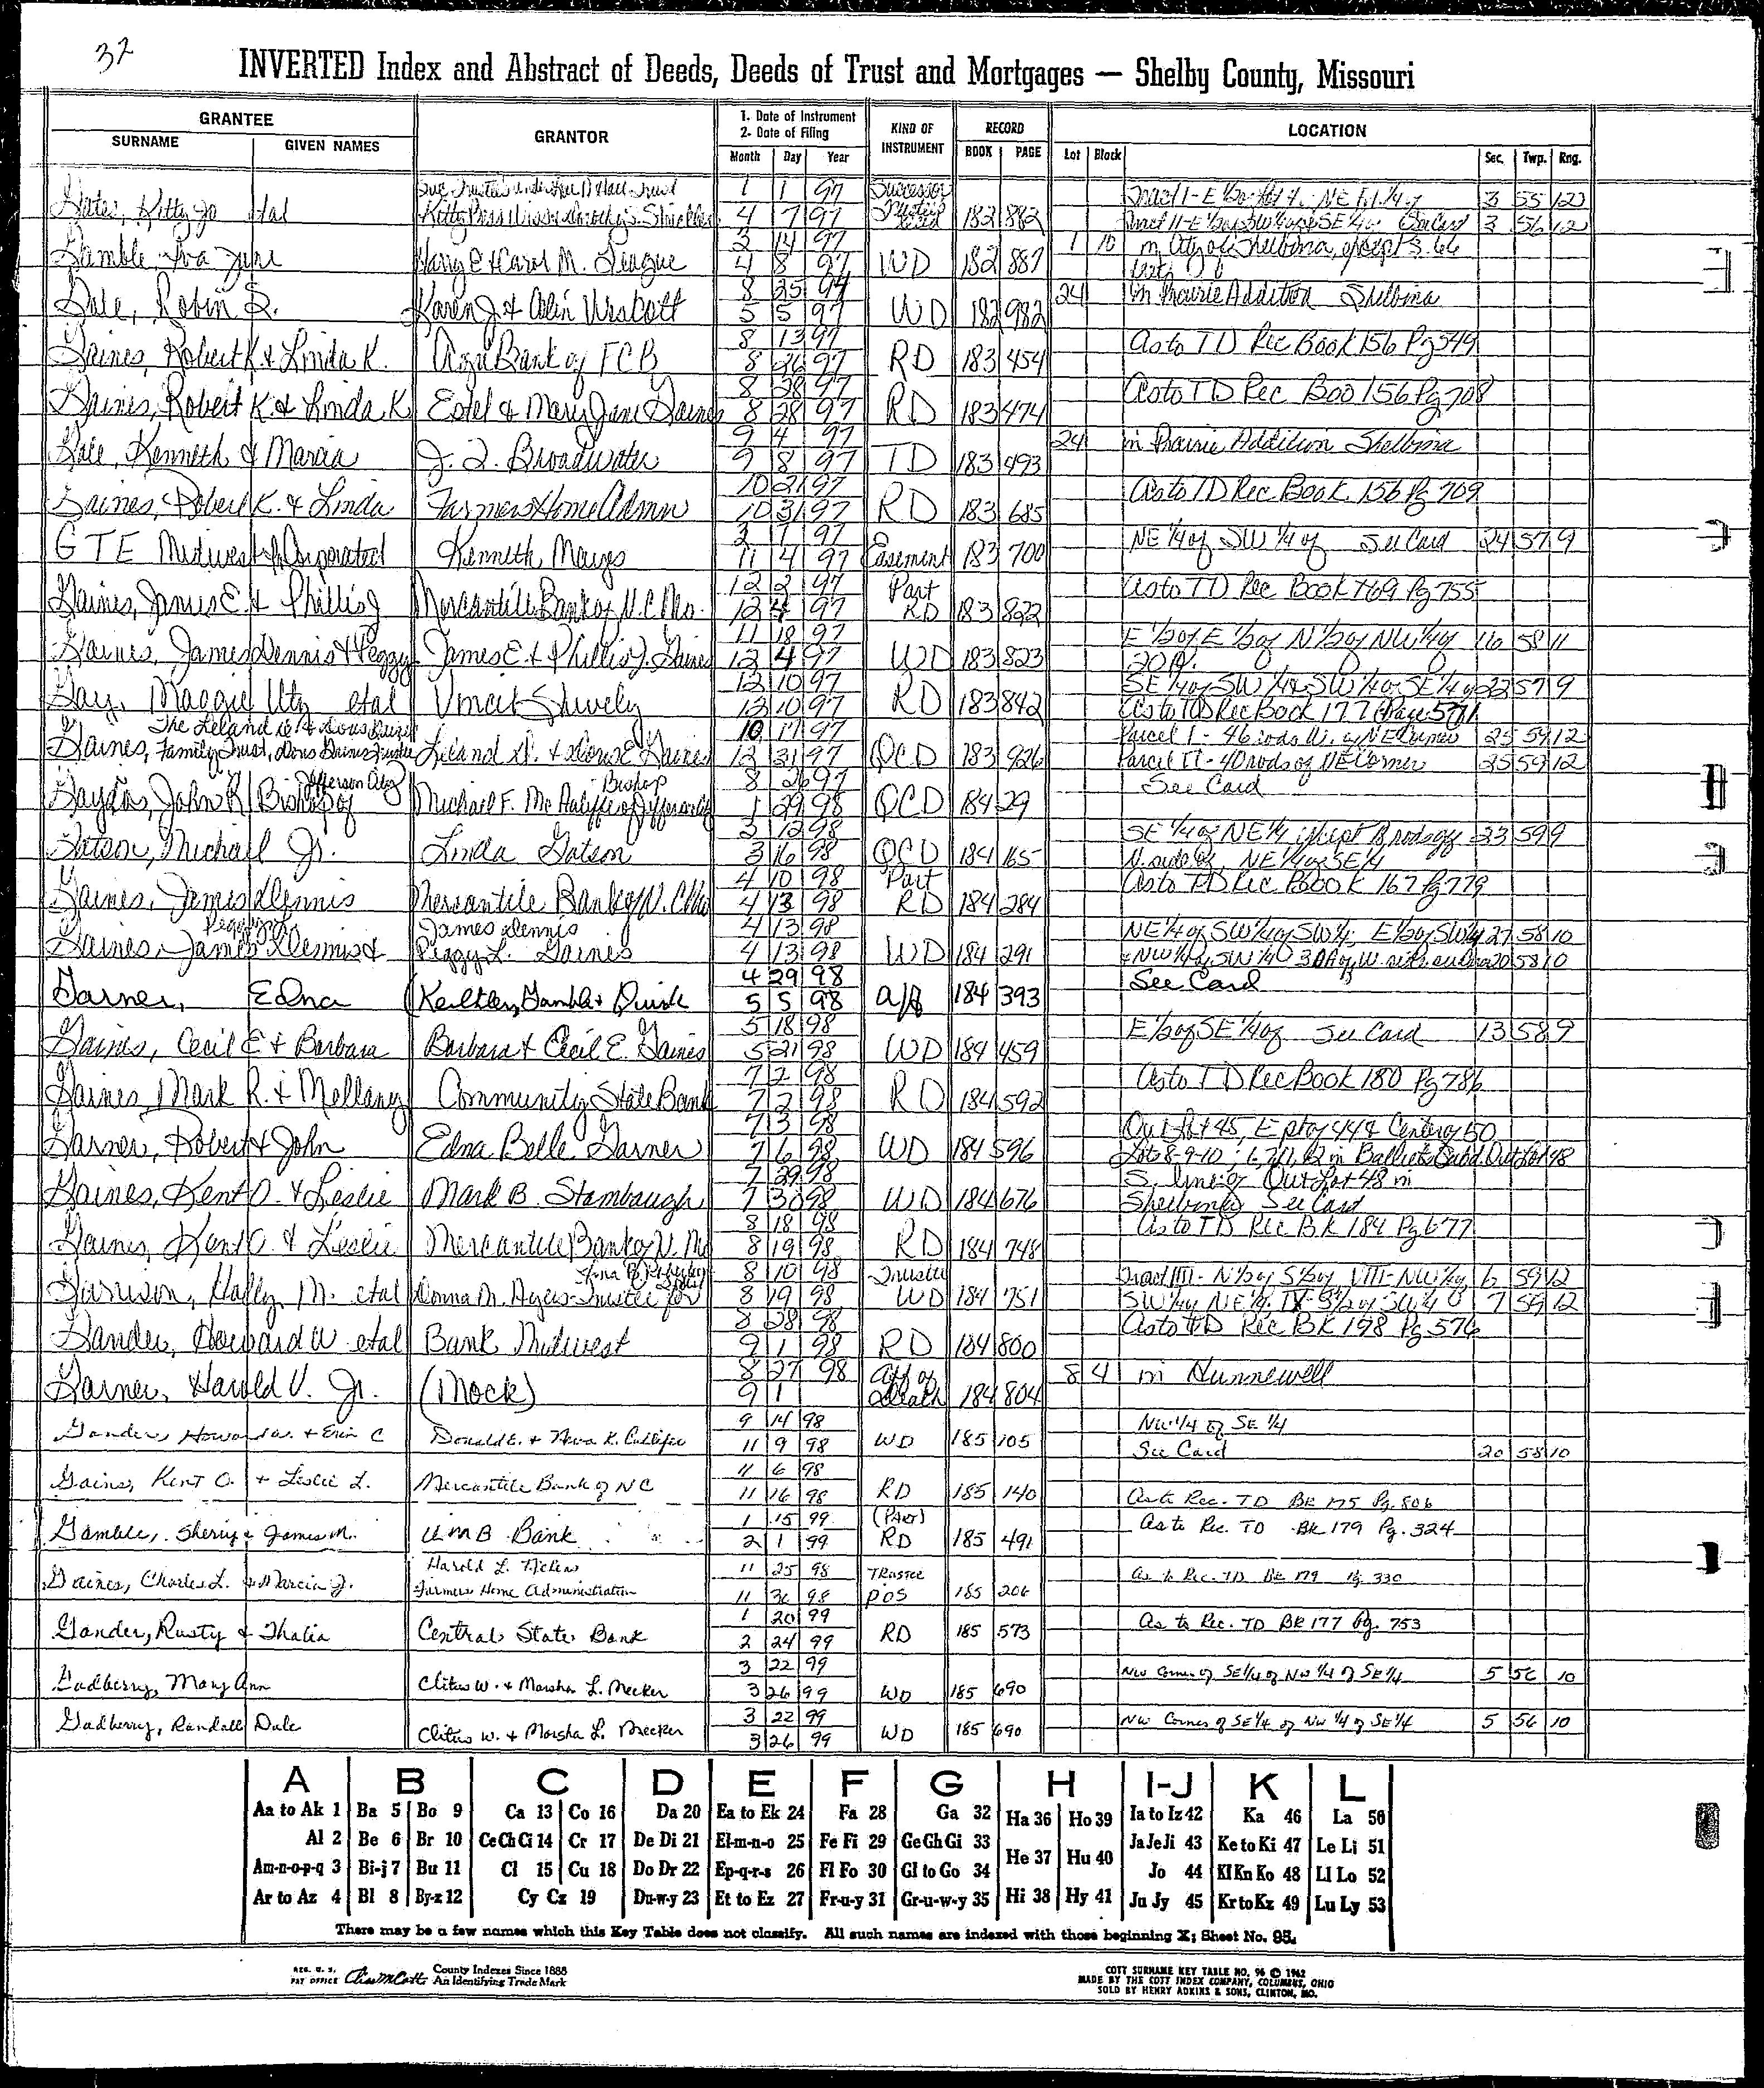 32
INVERTED Index and Abstract of Deeds, Deeds of Trust and Mortgages — Shelby County, Missouri
GRANTEE
SURNAME GIVEN NAMES
GRANTOR
1. Date of Instrument
2. Date of Filing
Month Day Year
KIND OF INSTRUMENT
RECORD
BOOK PAGE
LOCATION
Lot Block Sec. Twp. Rng.
1 1 97 Successor Tract I - E 1/2 NE 1/4 3 55 12
Kitty Jo etal 4 7 97 Trustee Deed 182 882 Tract II - E 1/2 of SW 1/4 of SE 1/4 See Card 3 56 12
3 14 97 1 10 in City of Shelbina, except S. 66
Gamble Iva June Harry E & Carol M. League 4 8 97 WD 182 887 feet
8 25 94 24 in Prairie Addition Shelbina
Gale, Robin R. Karen J & Alin Wescott 5 5 97 WD 182 982
8 13 97 As to TD Rec Book 156 Pg 549
Gaines, Robert K. & Linda K. Agri Bank of FCB 8 26 97 RD 183 454
8 28 97 As to TD Rec Boo 156 Pg 708
Gaines, Robert K & Linda K Estel & Mary Jane Gaines 8 28 97 RD 183 474
9 4 97 24 in Prairie Addition Shelbina
Gale, Kenneth & Marcia J. Q. Broadwater 9 8 97 TD 183 493
10 21 97 As to TD Rec Book 156 Pg 709
Gaines, Robert K. & Linda Farmers Home Admn 10 31 97 RD 183 685
3 7 97 NE 1/4 of SW 1/4 of See Card 24 57 9
GTE Midwest Incorporated Kenneth Mayes 11 4 97 Easement 183 700
12 2 97 Part As to TD Rec Book 169 Pg 755
Gaines, James E & Phillis J Mercantile Bank of N.C. Mo. 12 4 97 RD 183 822
11 18 97 E 1/2 of E 1/2 of N 1/2 of NW 1/4 16 58 11
Gaines, James Dennis & Peggy James E. & Phillis J. Gaines 12 4 97 WD 183 823 20 A.
12 10 97 SE 1/4 of SW 1/4 & SW 1/4 of SE 1/4 22 57 9
Gay, Maggie Utz etal Vincit Shively 12 10 97 RD 183 842 As to TD Rec Book 177 Page 571
The Leland & Doris Gaines 10 17 97 Parcel I - 46 rods W. of NE Corner 25 59 12
Gaines, Family Trust, Doris Gaines Trustee Leland & Doris E Gaines 12 31 97 QCD 183 926 Parcel II - 40 rods of NE Corner 25 59 12
Jefferson City Bishop 8 26 97 See Card
Gaydos, John R Bishop of Michael F. McAuliffe of Jefferson City 1 29 98 QCD 184 29
3 12 98 SE 1/4 of NE 1/4 except 8 rods off 23 59 9
Gatson, Michael Jr. Linda Gatson 3 16 98 QCD 184 165 N. side of NE 1/4 of SE 1/4
4 10 98 Part As to TD Rec Book 167 Pg 779
Gaines, James Dennis Mercantile Bank of N. C Mo 4 13 98 RD 184 284
James Dennis 4 13 98 NE 1/4 of SW 1/4 of SW 1/4; E 1/2 of SW 1/4 27 58 10
Gaines, James Dennis & Peggy L. Gaines 4 13 98 WD 184 291 & NW 1/4 of SW 1/4 30A of W. side 20 58 10
4 29 98 See Card
Garner, Edna (Keithley, Gamble & Quirk 5 5 98 aff 184 393
5 18 98 E 1/2 of SE 1/4 of See Card 13 58 9
Gaines, Cecil E & Barbara Barbara & Cecil E. Gaines 5 21 98 WD 184 459
7 2 98 As to TD Rec Book 180 Pg 786
Gaines, Mark R. & Mellany Community State Bank 7 2 98 RD 184 592
7 3 98 Out Lot 45, E pt of 44 & Center of 50
Garner, Robert & John Edna Belle Garner 7 6 98 WD 184 596 Lots 8-9-10; 6, 7, 11, 12 in Subd. Out Lot 48
7 29 98 S. line of Out Lot 48 in
Gaines, Kent O. & Leslie Mark B. Stambaugh 7 30 98 WD 184 676 Shelbina See Card
8 18 98 As to TD Rec BK 184 Pg 677
Gaines, Kent O. & Leslie Mercantile Bank of N. Mo 8 19 98 RD 184 748
8 10 98 Trustee Tract III - N 1/2 of S 1/2 of VIII - NW 1/4 6 59 12
Garrison, M. etal Donna M. Ayers Trustee for 8 19 98 WD 184 751 SW 1/4 of NE 1/4 IX - S 1/2 of SW 1/4 7 59 12
8 28 98 As to TD Rec BK 198 Pg 576
Gander, Howard W etal Bank Midwest 9 1 98 RD 184 800
8 27 98 Aff of 8 4 in Hunnewell
Garner, Harold V. Jr. (Mock) 9 1 Death 184 804
9 14 98 NW 1/4 of SE 1/4
Gander, Howard W. & Erin C Donald E. & Neva K. 11 9 98 WD 185 105 See Card 20 58 10
11 6 98
Gaines, Kent O. & Leslie L. Mercantile Bank of NC 11 16 98 RD 185 140 As to Rec. TD BK 175 Pg. 806
1 15 99 (Part) As to Rec. TD BK 179 Pg. 324
Gamble, Sherry & James M. UMB Bank 2 1 99 RD 185 491
Harold L. 11 25 98 Trustee As to Rec. TD BK 179 Pg 330
Gaines, Charles L. & Marcia J. Farmers Home Administration 11 30 98 POS 185 206
1 20 99 As to Rec. TD BK 177 Pg. 753
Gander, Rusty & Thalia Central State Bank 2 24 99 RD 185 573
3 22 99 NW Corner of SE 1/4 of NW 1/4 of SE 1/4 5 56 10
Gadberry, Mary Ann Clitus W. & Marsha L. Mecker 3 26 99 WD 185 690
3 22 99 NW Corner of SE 1/4 of NW 1/4 of SE 1/4 5 56 10
Gadberry, Randall Dale Clitus W. & Marsha L. Mecker 3 26 99 WD 185 690
A B C D E F G H I-J K L
Aa to Ak 1 Ba 5 Bo 9 Ca 13 Co 16 Da 20 Ea to Ek 24 Fa 28 Ga 32 Ha 36 Ho 39 Ia to Iz 42 Ka 46 La 50
Al 2 Be 6 Br 10 Ce Ch Ci 14 Cr 17 De Di 21 El-m-n-o 25 Fe Fi 29 Ge Gh Gi 33 He 37 Hu 40 Ja Je Ji 43 Ke to Ki 47 Le Li 51
Am-n-o-p-q 3 Bi-j 7 Bu 11 Cl 15 Cu 18 Do Dr 22 Ep-q-r-s 26 Fl Fo 30 Gl to Go 34 Hi 38 Hy 41 Jo 44 Kl Kn Ko 48 Ll Lo 52
Ar to Az 4 Bl 8 By-z 12 Cy Cz 19 Du-w-y 23 Et to Ez 27 Fr-u-y 31 Gr-u-w-y 35 Ju Jy 45 Kr to Kz 49 Lu Ly 53
There may be a few names which this Key Table does not classify. All such names are indexed with those beginning X; Sheet No. 95.
REG. U. S. PAT OFFICE County Indexes Since 1888 An Identifying Trade Mark
COTT SURNAME KEY TABLE NO. 96 © 1962
MADE BY THE COTT INDEX COMPANY, COLUMBUS, OHIO
SOLD BY HENRY ADKINS & SONS, CLINTON, MO.